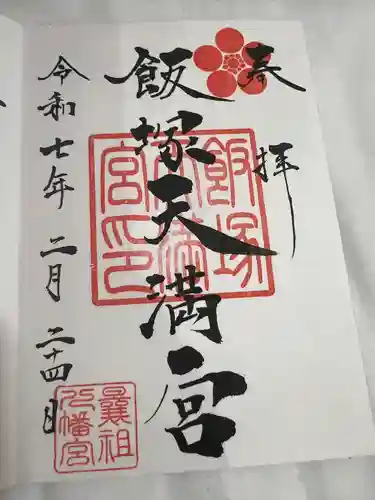 奉拝
飯塚天満宮
令和七年二月二十四日
飯塚天満宮印
曩祖八幡宮